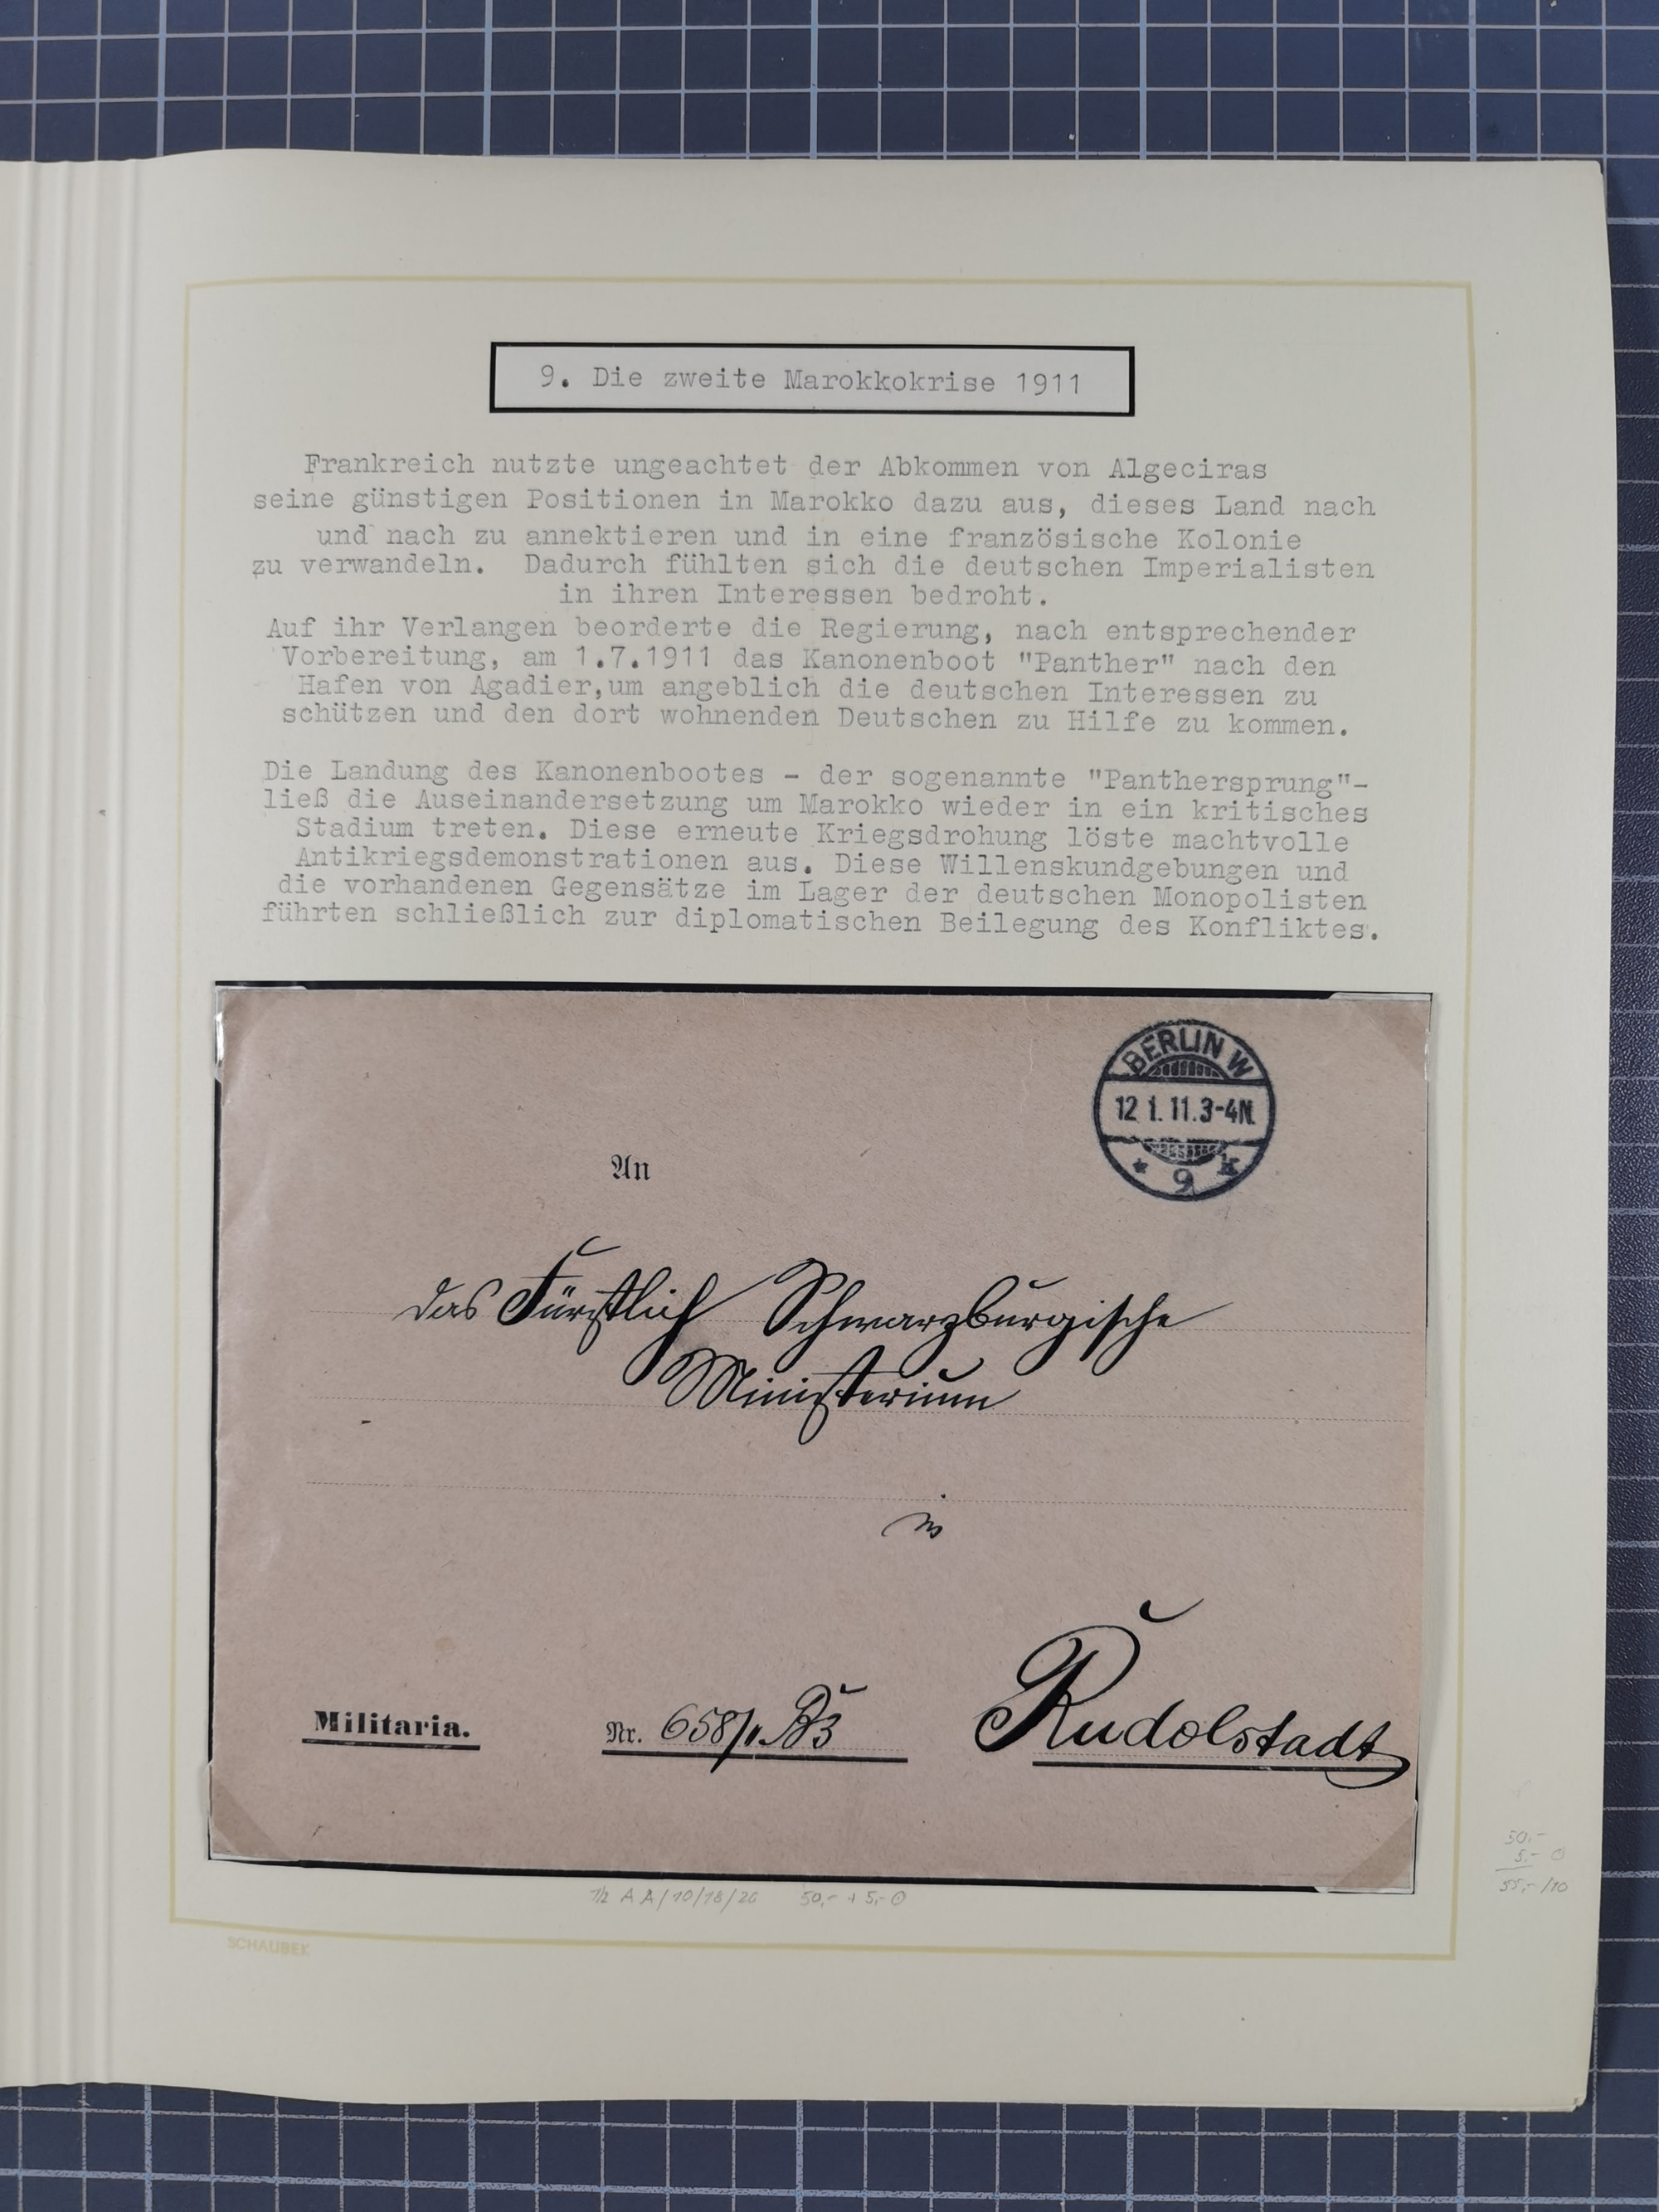 9. Die zweite Marokkokrise 1911
Frankreich nutzte ungeachtet der Abkommen von Algeciras
seine günstigen Positionen in Marokko dazu aus, dieses Land nach
und nach zu annektieren und in eine französische Kolonie
zu verwandeln. Dadurch fühlten sich die deutschen Imperialisten
in ihren Interessen bedroht.
Auf ihr Verlangen beorderte die Regierung, nach entsprechender
Vorbereitung, am 1.7.1911 das Kanonenboot "Panther" nach den
Hafen von Agadier,um angeblich die deutschen Interessen zu
schützen und den dort wohnenden Deutschen zu Hilfe zu kommen.
Die Landung des Kanonenbootes - der sogenannte "Panthersprung"-
ließ die Auseinandersetzung um Marokko wieder in ein kritisches
Stadium treten. Diese erneute Kriegsdrohung löste machtvolle
Antikriegsdemonstrationen aus. Diese Willenskundgebungen und
die vorhandenen Gegensätze im Lager der deutschen Monopolisten
führten schließlich zur diplomatischen Beilegung des Konfliktes.
BERLIN W
12 1. 11. 3-4N.
* 9 k
An
das Fürstlich Schwarzburgische
Ministerium
in
Rudolstadt
Militaria.
Nr. 658/11. B3
1/2 A A/10/18/20 50,- + 5,-
50,-
5,-
55,-/10
SCHAUBEK